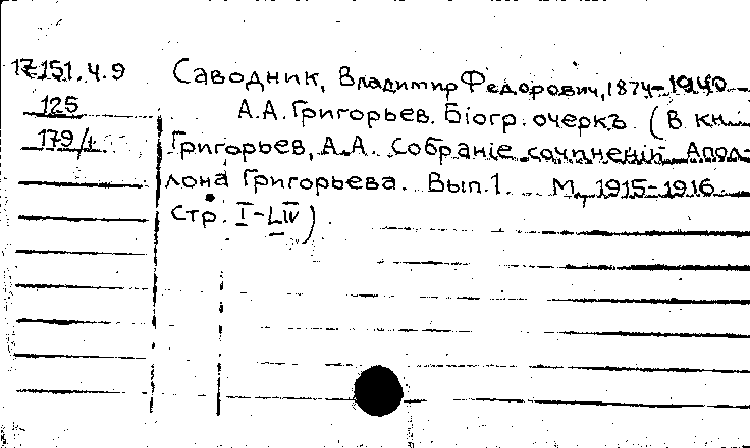 17.151.4.9
125
179/1
Саводник, Владимир Федорович, 1874-1940
А.А. Григорьев. Біогр. очеркъ. (В кн.
Григорьев, А.А. Собраніе сочиненій Апол-
лона Григорьева. Вып.1. М., 1915-1916.
стр. I-LIV).